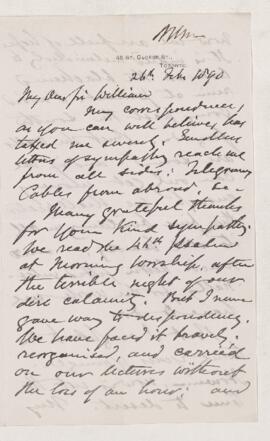 TORONTO.
26th Feb 1890
My Dear Sir William
My correspondence,
as you can well believe, has
taxed me severely. Endless
letters of sympathy reach me
from all sides: Telegrams
Cables from abroad, &c
Many grateful thanks
for your kind sympathy.
We read the 46th Psalm
at Morning Worship, after
the terrible night of our
dire calamity. But I never
gave way to despondency.
We have faced it bravely,
reorganised, and carried
on our lectures without
the loss of an hour: and